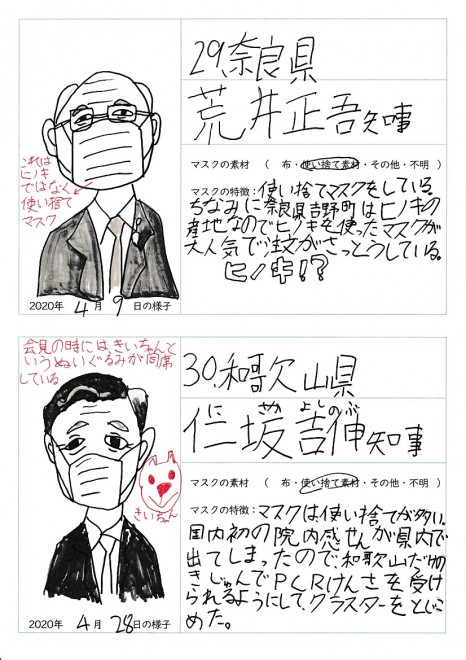 29.奈良県
荒井正吾知事
これは
ヒノキ
ではなく
使い捨て
マスク
マスクの素材　（　布・使い捨て素材・その他・不明　）
マスクの特徴：使い捨てマスクをしている。
ちなみに奈良県吉野町はヒノキの
産地なのでヒノキを使ったマスクが
大人気で注文がさっとうしている。
ヒノキ!?
2020年 4月 9日の様子
会見の時にはきいちゃんと
いうぬいぐるみが同席
している
きいちゃん
30.和歌山県
に さか よしのぶ
仁坂吉伸知事
マスクの素材　（　布・使い捨て素材・その他・不明　）
マスクの特徴：マスクは使い捨てが多い。
国内初の院内感せんが県内で
出てしまったので、和歌山だけの
きじゅんでPCRけんさを受け
られるようにして、クラスターをとじこ
めた。
2020年 4月 28日の様子